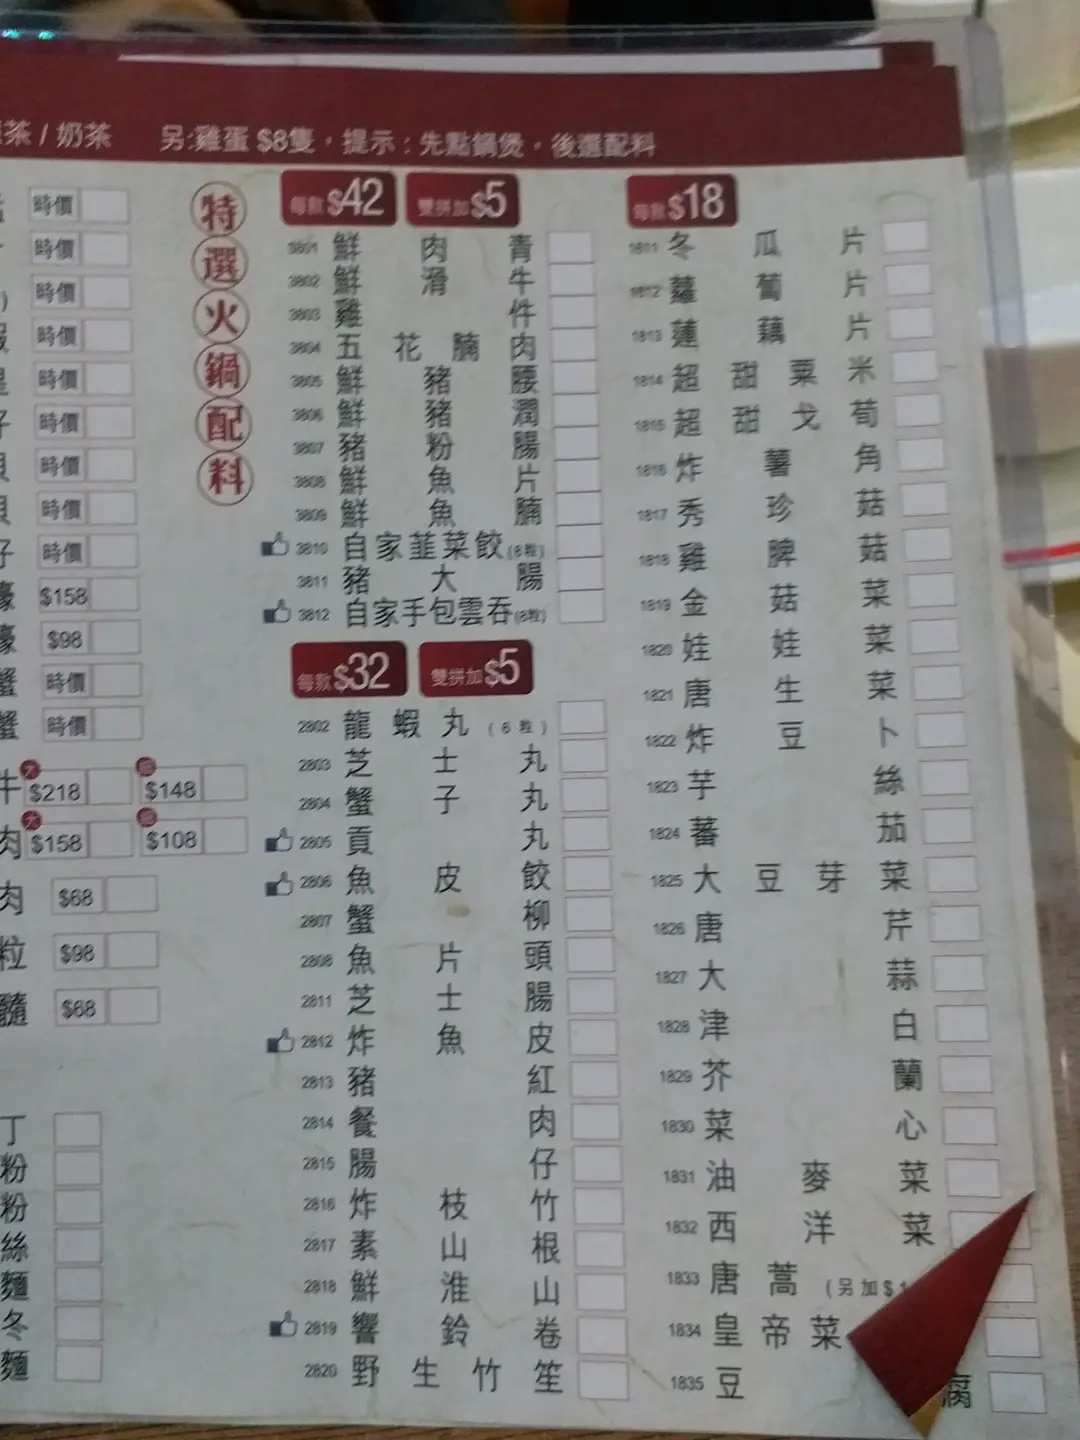 茶 / 奶茶 另:雞蛋 $8隻，提示：先點鍋煲，後選配料
時價
時價
時價
時價
時價
時價
時價
時價
時價
$158
$98
蟹 時價
蟹 時價
牛 大 $218 $148
肉 大 $158 $108
肉 $68
粒 $98
髓 $68
丁
粉
粉
絲
麵
冬
麵
特選火鍋配料
每款$42 雙拼加$5
3801 鮮肉青
3802 鮮滑牛
3803 雞件
3804 五花腩肉
3805 鮮豬腰
3806 鮮豬潤
3807 豬粉腸
3808 鮮魚片
3809 鮮魚腩
3810 自家韮菜餃(8粒)
3811 豬大腸
3812 自家手包雲吞(8粒)
每款$32 雙拼加$5
2802 龍蝦丸(6粒)
2803 芝士丸
2804 蟹子丸
2805 貢丸
2806 魚皮餃
2807 蟹柳
2808 魚片頭
2811 芝士腸
2812 炸魚皮
2813 豬紅
2814 餐肉
2815 腸仔
2816 炸枝竹
2817 素山根
2818 鮮淮山
2819 響鈴卷
2820 野生竹笙
每款$18
1811 冬瓜片
1812 蘿蔔片
1813 蓮藕片
1814 超甜粟米
1815 超甜戈筍
1816 炸薯角
1817 秀珍菇
1818 雞脾菇
1819 金菇菜
1820 娃娃菜
1821 唐生菜
1822 炸豆卜
1823 芋絲
1824 蕃茄
1825 大豆芽菜
1826 唐芹
1827 大蒜
1828 津白
1829 芥蘭
1830 菜心
1831 油麥菜
1832 西洋菜
1833 唐蒿(另加$
1834 皇帝菜
1835 豆腐